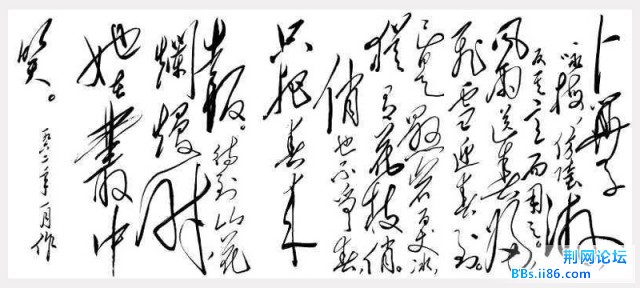 卜算子
詠梅，仿陸游
反其意而用之。
风雨送春归
飞雪迎春到。
已是懸岩百丈冰，
猶有花枝俏。
俏也不争春，
只把春来
報。待到山花
爛熳时
她在叢中
笑。
一九六二年一月作
荆网论坛
BBs.ii86.com